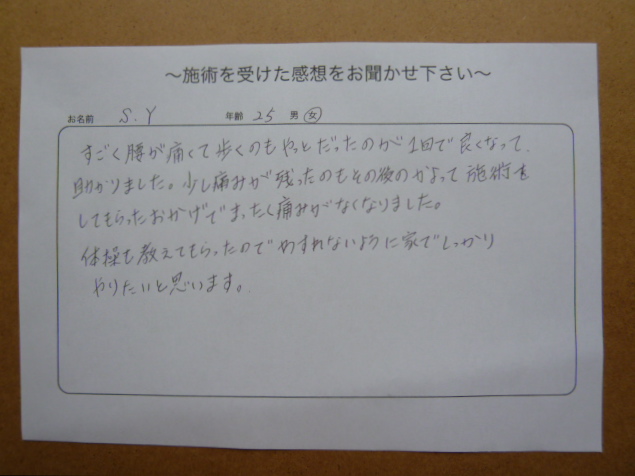 ～施術を受けた感想をお聞かせ下さい～
お名前 S.Y 年齢 25 男 女
すごく腰が痛くて歩くのもやっとだったのが1回で良くなって、
助かりました。少し痛みが残ったのもその後のかよって施術を
してもらったおかげでまったく痛みがなくなりました。
体操も教えてもらったのでわすれないように家でしっかり
やりたいと思います。